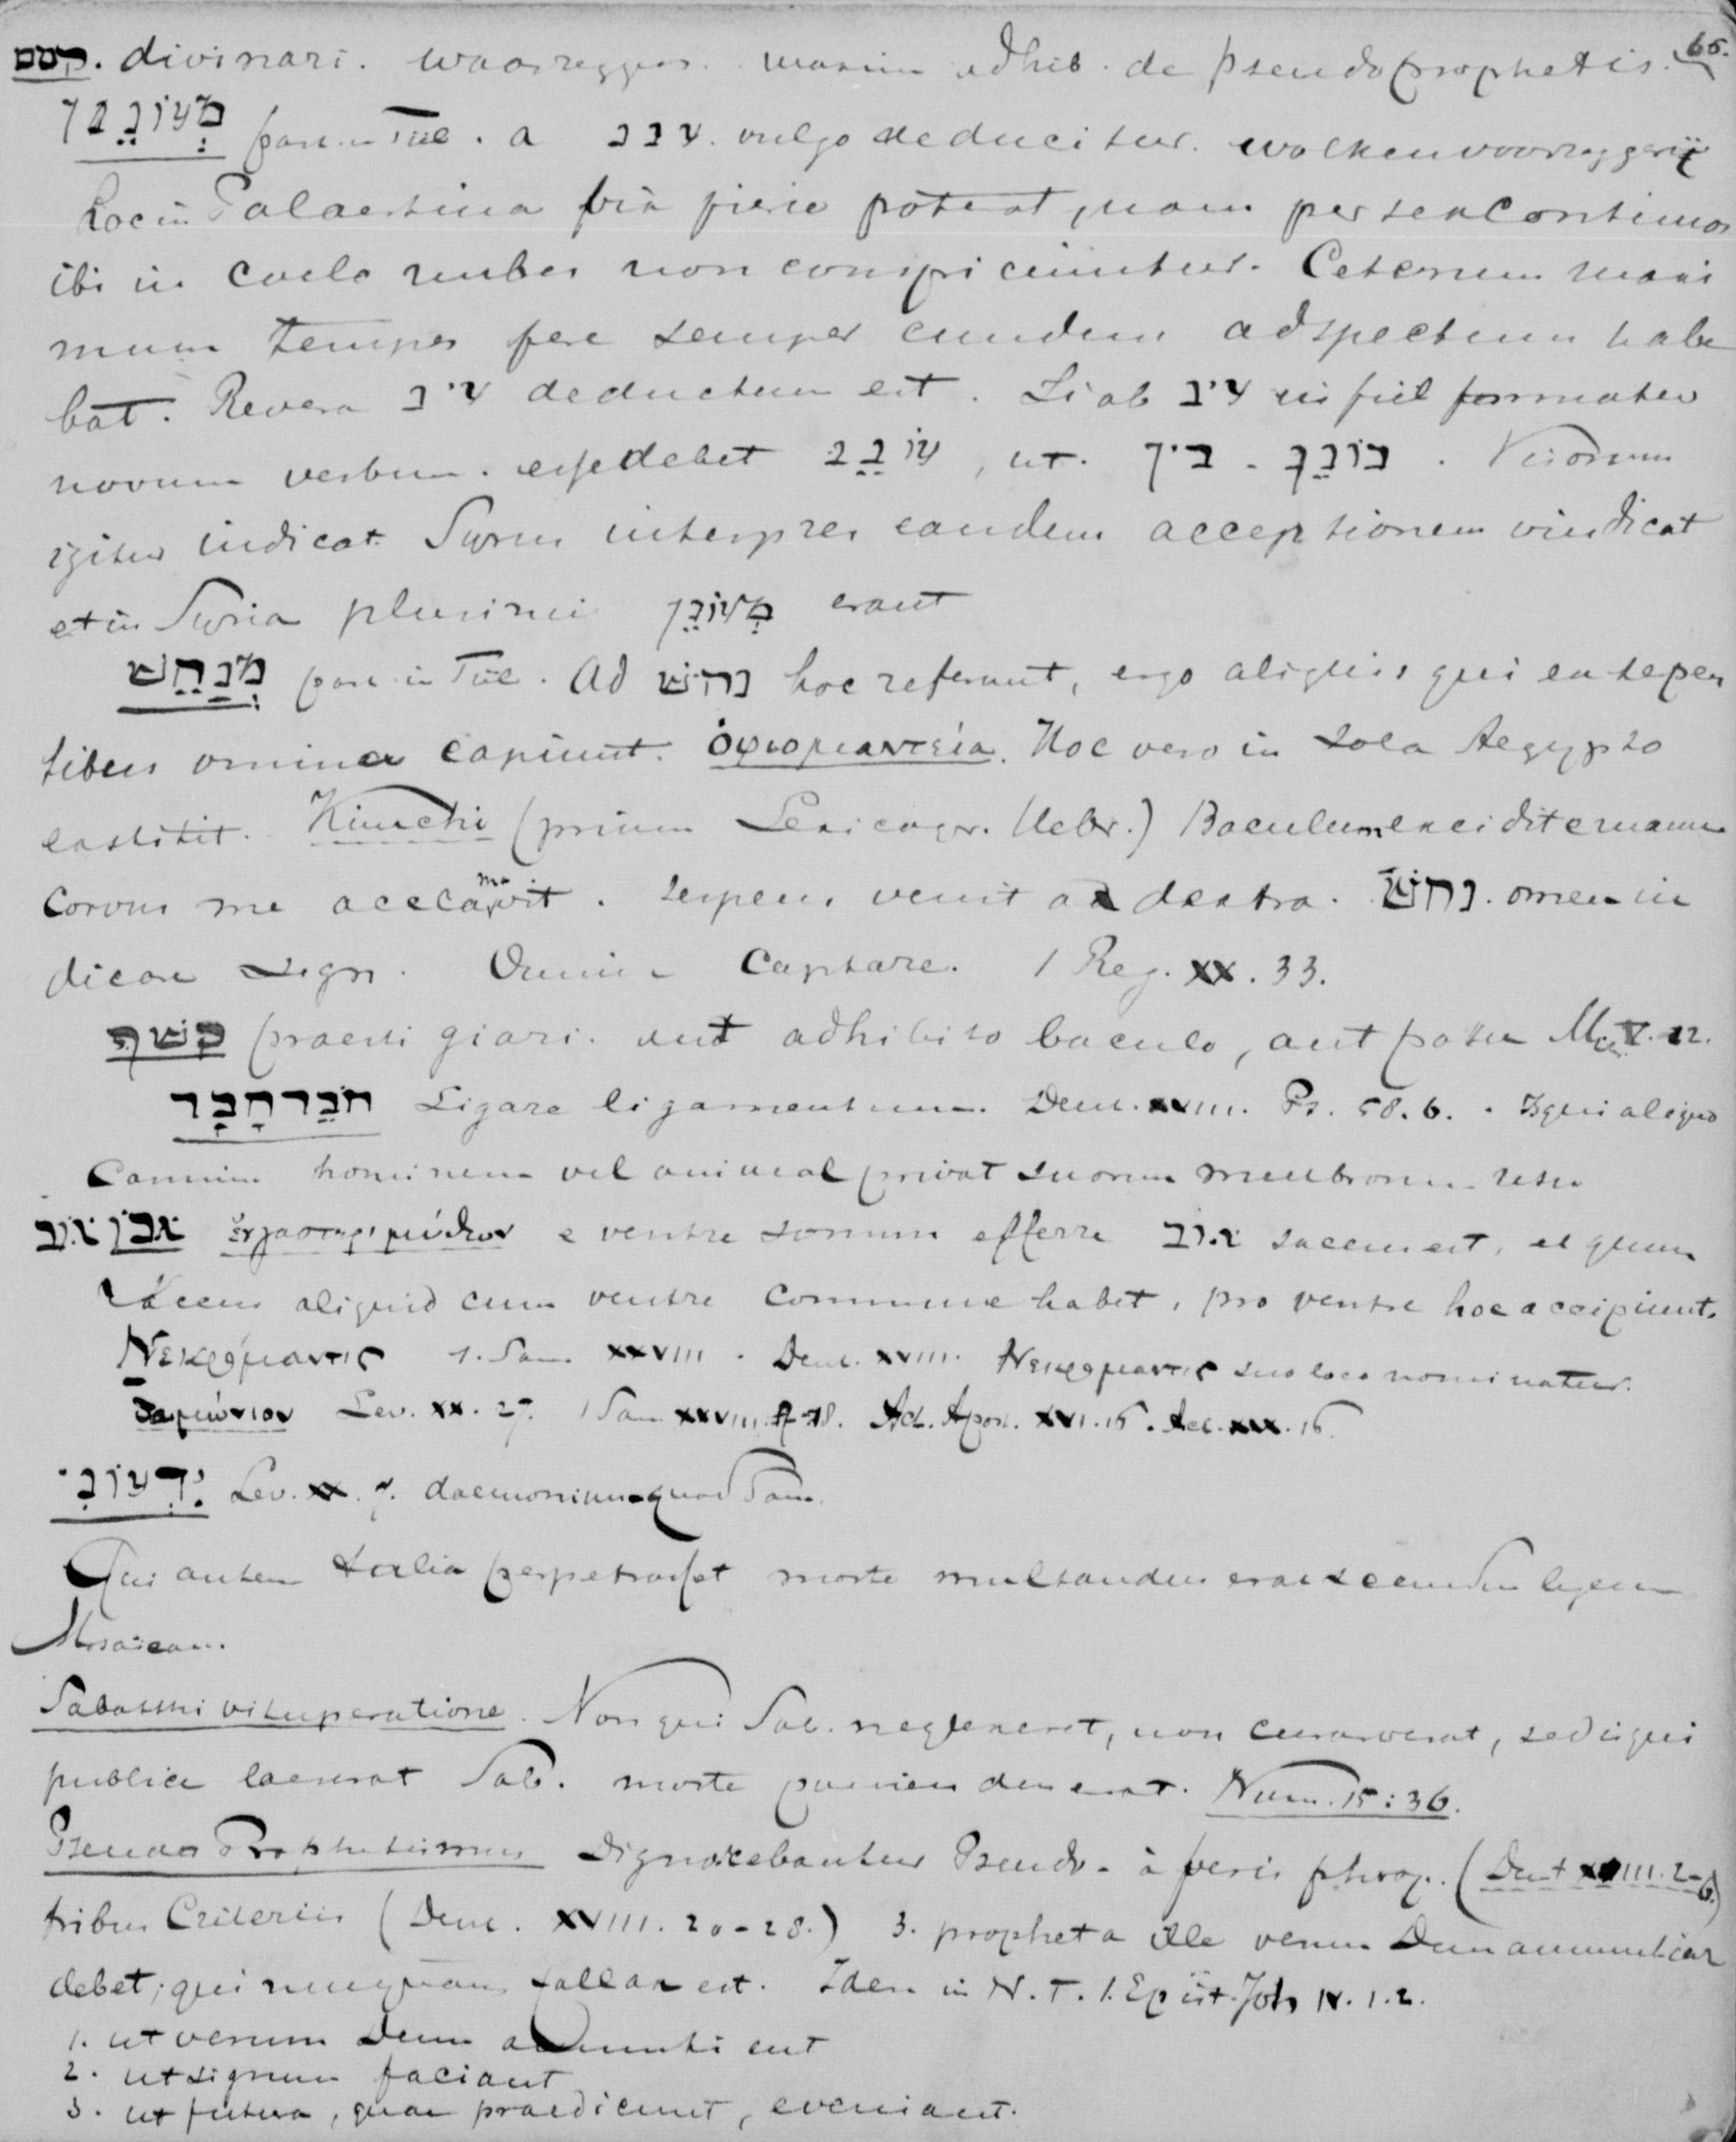 קסם. divinari. waarzeggen. maxim adhib. de pseudoprophetis. 65.
מְעוֹנֵנן part. in Piel. a ענן. vulgo deducitur. wolkenvoorzeggerij
hoc in Palaestina vix fieri poterat, nam per sex continuos
ibi in coelo nubes non conspiciuntur. Ceterum maxi
mum tempus fere semper eundem adspectum habe
bat. Revera עין deductum est. Si ab עין in piel formatur
novum verbum. esse debet עוֹנֵן, ut. בין - בונֵן. Visorum
igitur indicat Syrus interpres eandem acceptionem vindicat
et in Syria plurimi מְעוֹנֵן erant
מְנַחֵשׁ part. in Piel. Ad נחשׁ hoc referunt, ergo aliquis qui ex serpen
tibus omina capiunt. ὀφιομαντεία. Hoc vero in sola Aegypto
exstitit. Kimchi (primus Lexicogr. Hebr.) Baculum excidit e manu
corvus me acclamavit. serpens venit a dextra. נחשׁ. omen in
dicare sign. Omina captare. 1 Reg. XX. 33.
קשׁף praestigiari. aut adhibito baculo, aut V. 12.
חֹבֵר חָבֶר Ligare ligamentum. Deut. XVIII. Ps. 58. 6. Is qui aliquo
Carmine hominem vel animal privat suorum membrorum usu
ἐγγαστριμύθων e ventre sonum efferre אוב saccum est, et quum
saccus aliquid cum ventre commune habet, pro ventre hoc accipiunt.
Νεκρόμαντις 1. Sam. XXVIII. Deut. XVIII. Νεκρομαντις suo loco nominatur.
δαιμόνιον Lev. XX. 27. 1 Sam XXVIII. Act. Apost. XVI. 16. 16.
יִדְּעוֹנִי Lev. XX. daemonium quod
Qui autem talia perpetrasset morte multandus erat secundum legem
Mosaicam.
Sabathi vituperatione. Non qui Sab. neglexerat, non curaverat, sed is qui
publice laeserat Sab. morte puniendus erat. Num. 15 : 36.
Pseudo Prophetismus Dignoscebantur Pseudo- à veris proph. (Deut XIII. 2-6)
tribus Criteriis (Deut. XVIII. 20-28.) 3. propheta ille verum Deum annuntiare
debet; qui nunquam fallax est. Idem in N. T. 1. Epist. Joh IV. 1. 2.
1. ut verum Deum adnuntient
2. ut signum faciant
3. ut futura, quae praedicunt, eveniant.